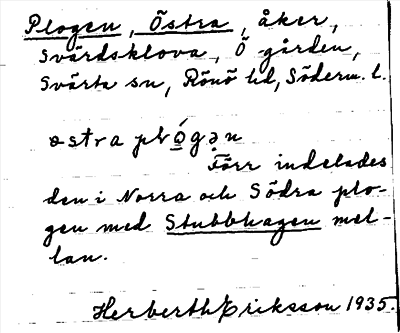 Plogen, Östra, åker,
Svärdsklova, Ö gården,
Svärta sn, Rönö hd, Söderm. l.
ostra plǫ́gən
Förr indelades
den i Norra och Södra plo-
gen med Stubbhagen mel-
lan.
Herberth Eriksson 1935.